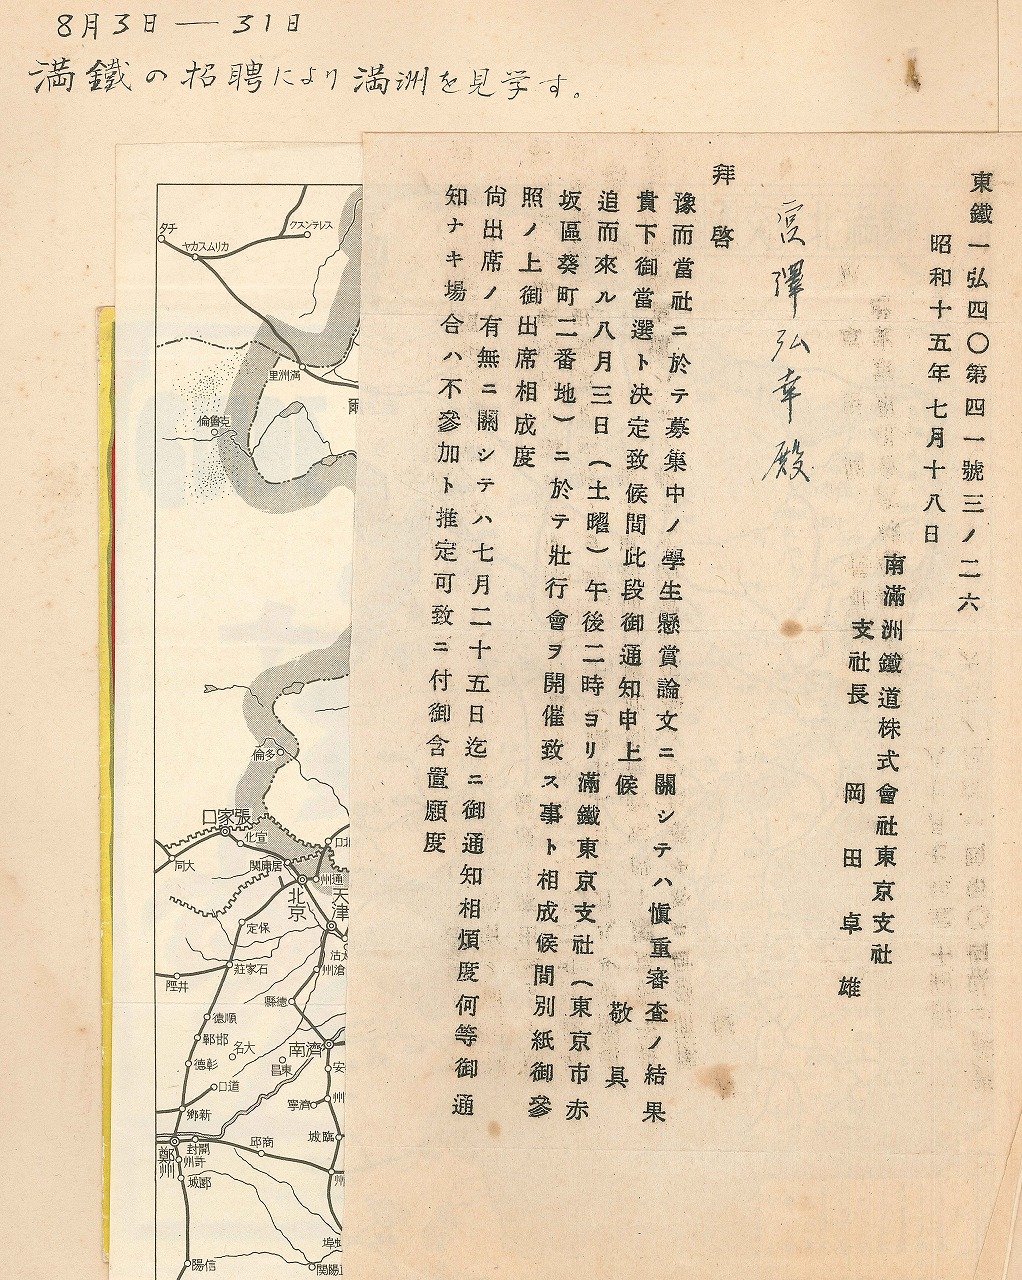 8月3日 ── 31日
満鐵の招聘により満洲を見学す。
東鐵一弘四〇第四一號三ノ二六
昭和十五年七月十八日
南滿洲鐵道株式會社東京支社
支社長 岡田卓雄
宮澤弘幸殿
拜啓
豫而當社ニ於テ募集中ノ學生懸賞論文ニ關シテハ愼重審査ノ結果
貴下御當選ト決定致候間此段御通知申上候
敬具
追而來ル八月三日(土曜)午後二時ヨリ滿鐵東京支社(東京市赤
坂區葵町二番地)ニ於テ壯行會ヲ開催致ス事ト相成候間別紙御參
照ノ上御出席相成度
尙出席ノ有無ニ關シテハ七月二十五日迄ニ御通知相煩度何等御通
知ナキ場合ハ不參加ト推定可致ニ付御含置願度
スレテンスク
チタ
カリムスカヤ
滿洲里
克魯倫
多倫
張家口
宣化
大同
居庸關
通州
北京
天津
保定
石家莊
井陘
滄州
德縣
順德
邯鄲
大名
濟南
彰德
東昌
道口
濟寧
新鄉
臨城
商邱
開封
鄭州
許州
郾城
信陽